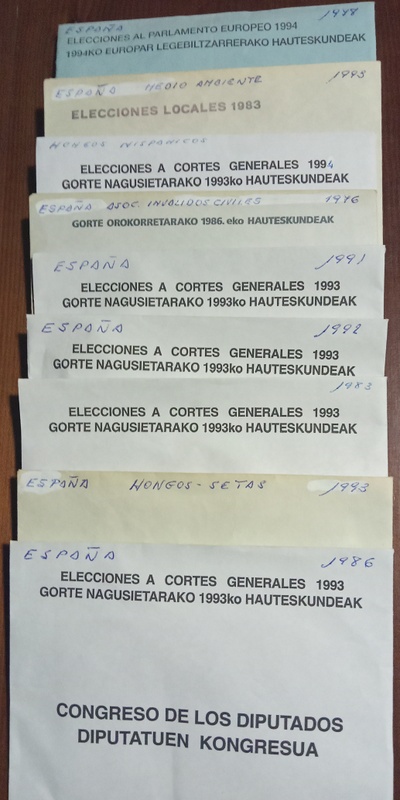 ESPAÑA 1977
ELECCIONES AL PARLAMENTO EUROPEO 1994
1994KO EUROPAR LEGEBILTZARRERAKO HAUTESKUNDEAK
ESPAÑA MEDIO AMBIENTE 1995
ELECCIONES LOCALES 1983
HONGOS MISPANICOS
ELECCIONES A CORTES GENERALES 1994
GORTE NAGUSIETARAKO 1993ko HAUTESKUNDEAK
ESPAÑA ASOC. INVALIDOS CIVILES 1976
GORTE OROKORRETARAKO 1986.eko HAUTESKUNDEAK
ESPAÑA 1991
ELECCIONES A CORTES GENERALES 1993
GORTE NAGUSIETARAKO 1993ko HAUTESKUNDEAK
ESPAÑA 1992
ELECCIONES A CORTES GENERALES 1993
GORTE NAGUSIETARAKO 1993ko HAUTESKUNDEAK
1983
ELECCIONES A CORTES GENERALES 1993
GORTE NAGUSIETARAKO 1993ko HAUTESKUNDEAK
ESPAÑA HONGOS - SETAS 1993
ESPAÑA 1986
ELECCIONES A CORTES GENERALES 1993
GORTE NAGUSIETARAKO 1993ko HAUTESKUNDEAK
CONGRESO DE LOS DIPUTADOS
DIPUTATUEN KONGRESUA